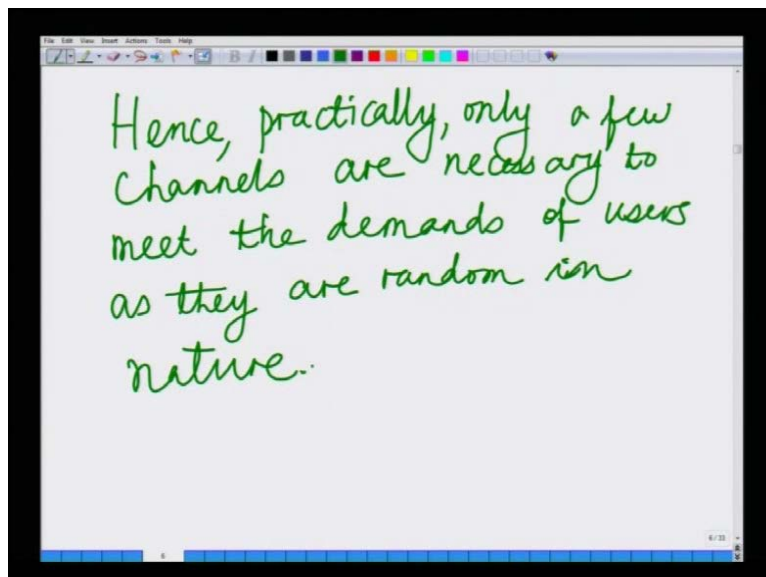 File Edit View Insert Actions Tools Help
Hence, practically, only a few
channels are necessary to
meet the demands of users
as they are random in
nature..
6/33
6